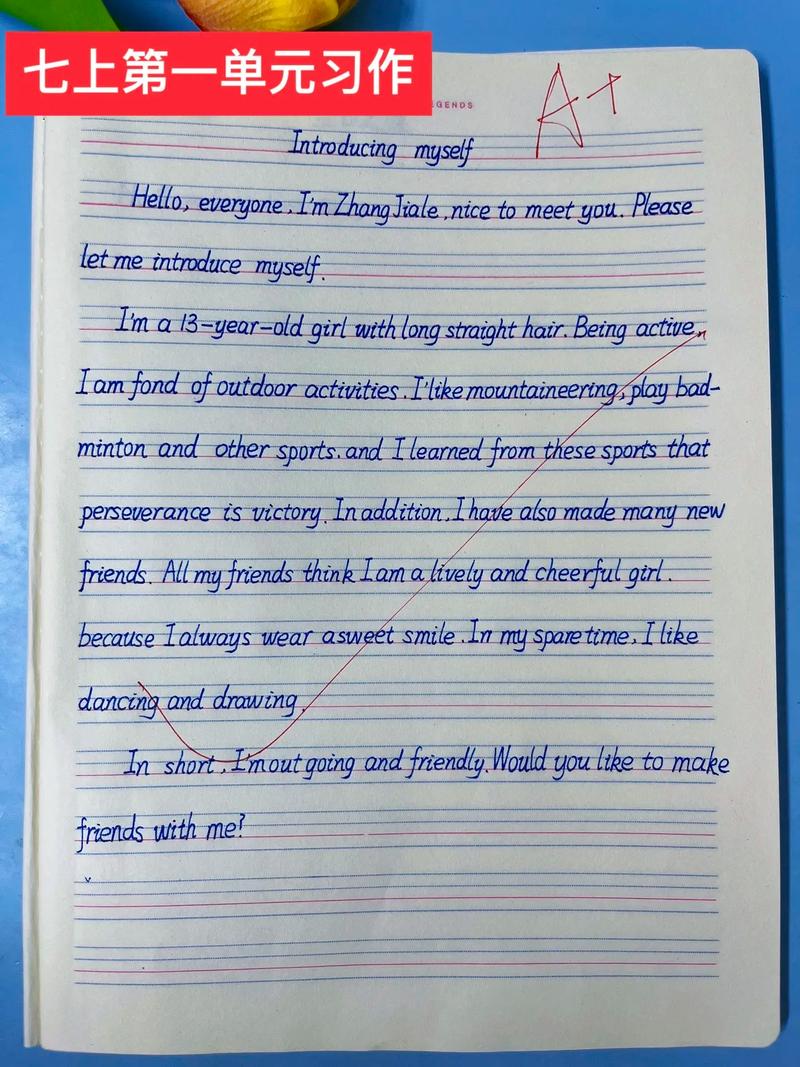 七上第一单元习作
GENDS
A+
Introducing myself
Hello, everyone, I'm Zhang Jiale, nice to meet you. Please
let me introduce myself.
I'm a 13-year-old girl with long straight hair. Being active,
I am fond of outdoor activities. I like mountaineering, play bad-
minton and other sports. and I learned from these sports that
perseverance is victory. In addition, I have also made many new
friends. All my friends think I am a lively and cheerful girl.
because I always wear a sweet smile. In my spare time, I like
dancing and drawing.
In short, I'm out going and friendly. Would you like to make
friends with me?